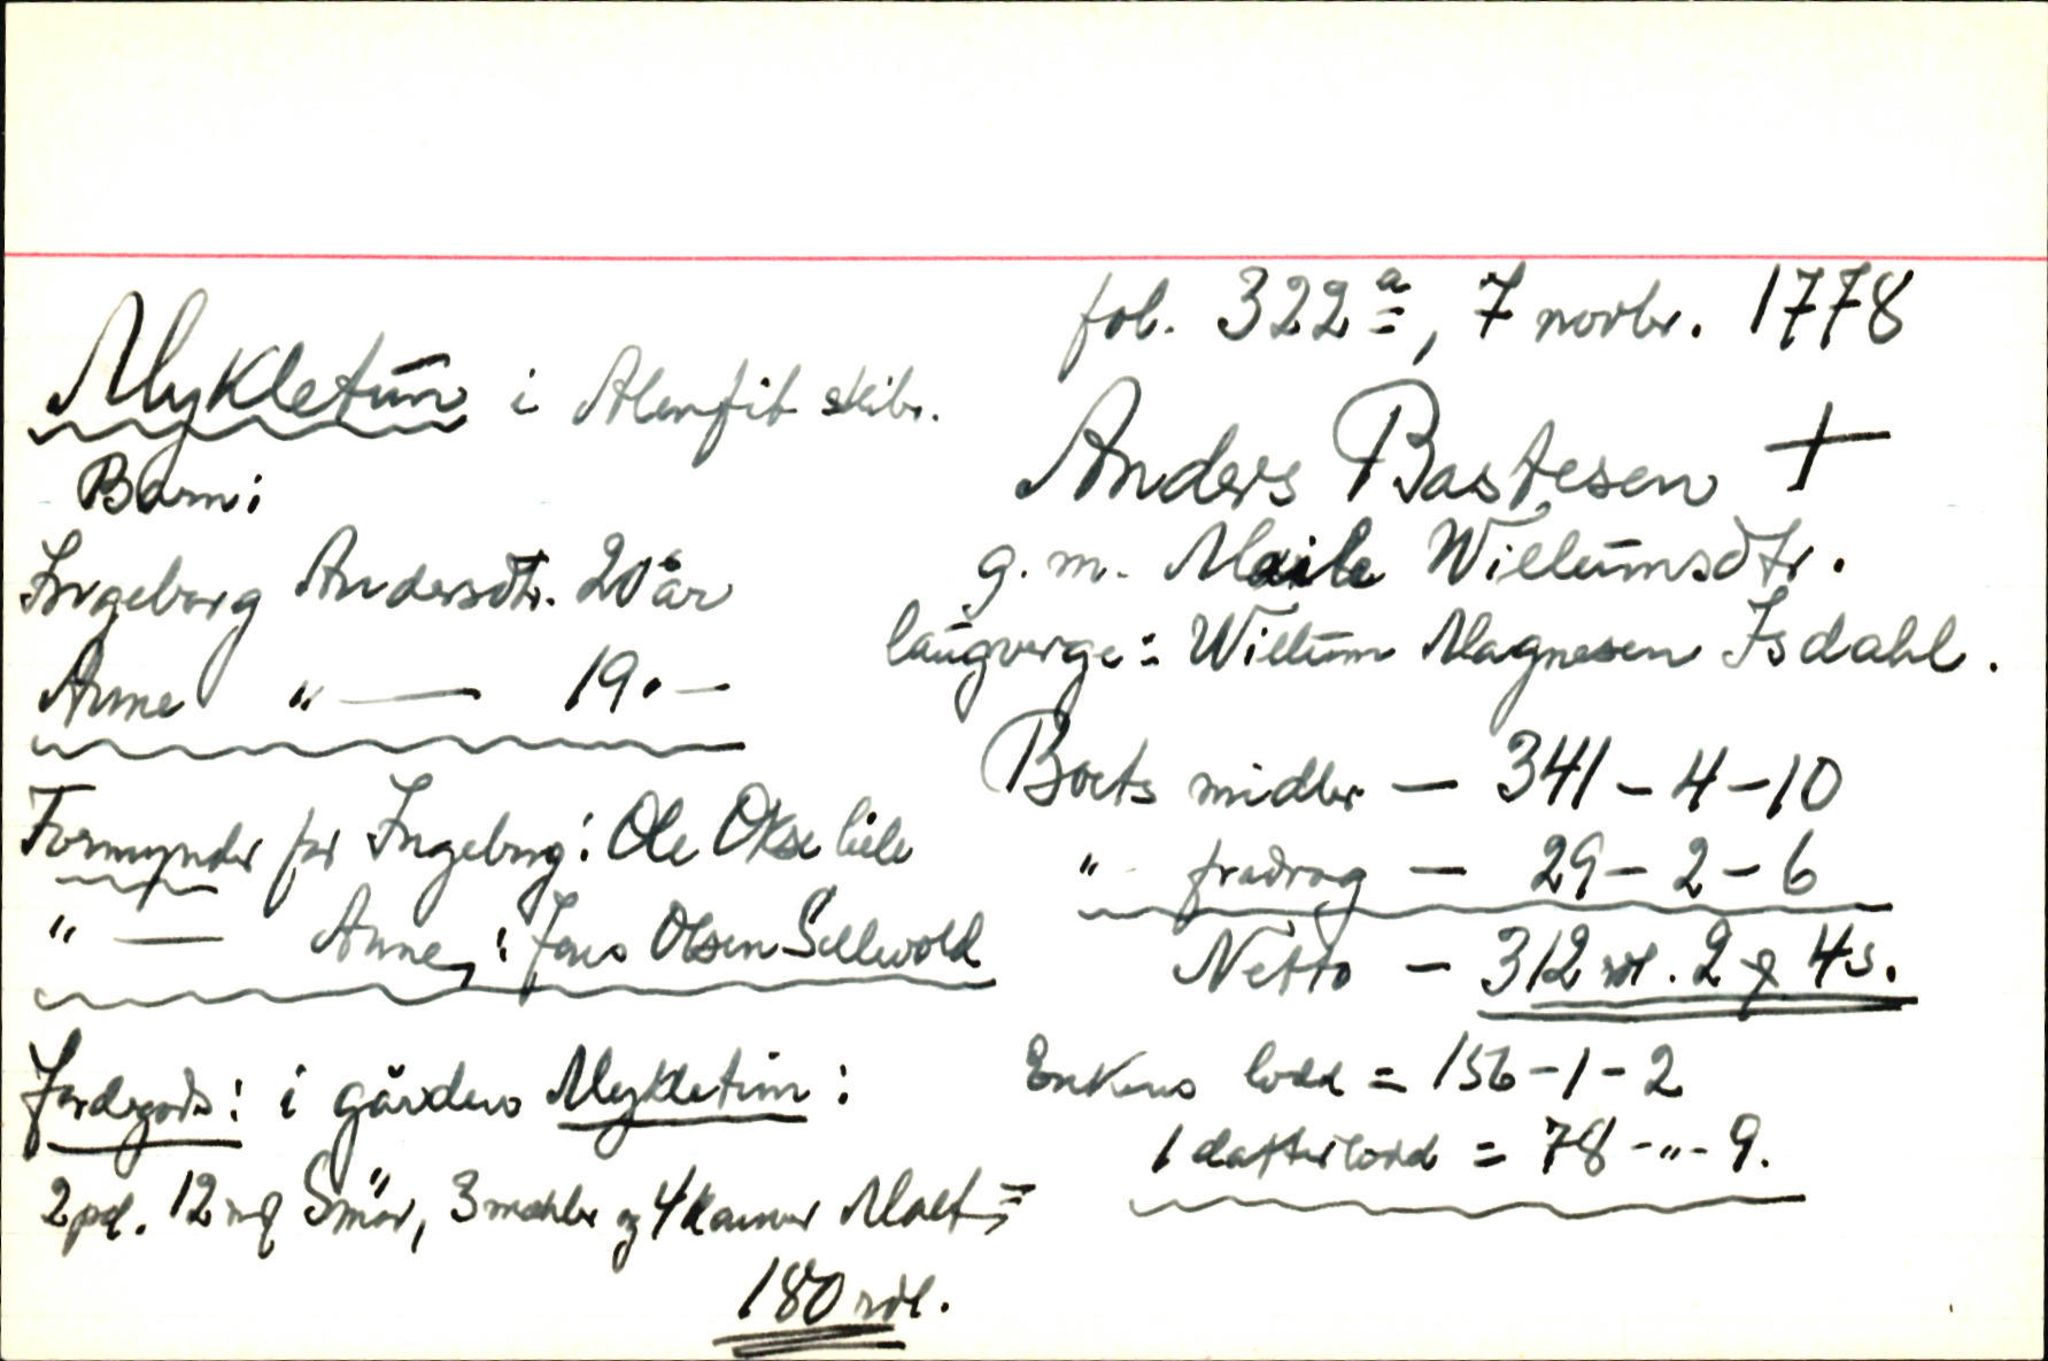 fol. 322a, 7 novbr. 1778
Mykletun i Alenfit skibr.
Anders Bastesen +
Barn:
g. m. Willumsdtr.
Ingeborg Andersdtr. 20 år
laugverge: Willum Magnesen Isdahl.
Anne " — 19 . —
Boets midler — 341 - 4 - 10
Formynder for Ingeborg: Ole Okse
" fradrag — 29 - 2 - 6
" — Anne, : Jens Olsen Sellevold
Netto — 312 rdl. 2 4 s.
Jordegods: i gården Mykletun:
Enkens lodd = 156 - 1 - 2
1 datterlodd = 78 - " - 9.
2 pd. 12 mq Smör, 3 mæhler og 4 kanner Malt =
180 rdl.